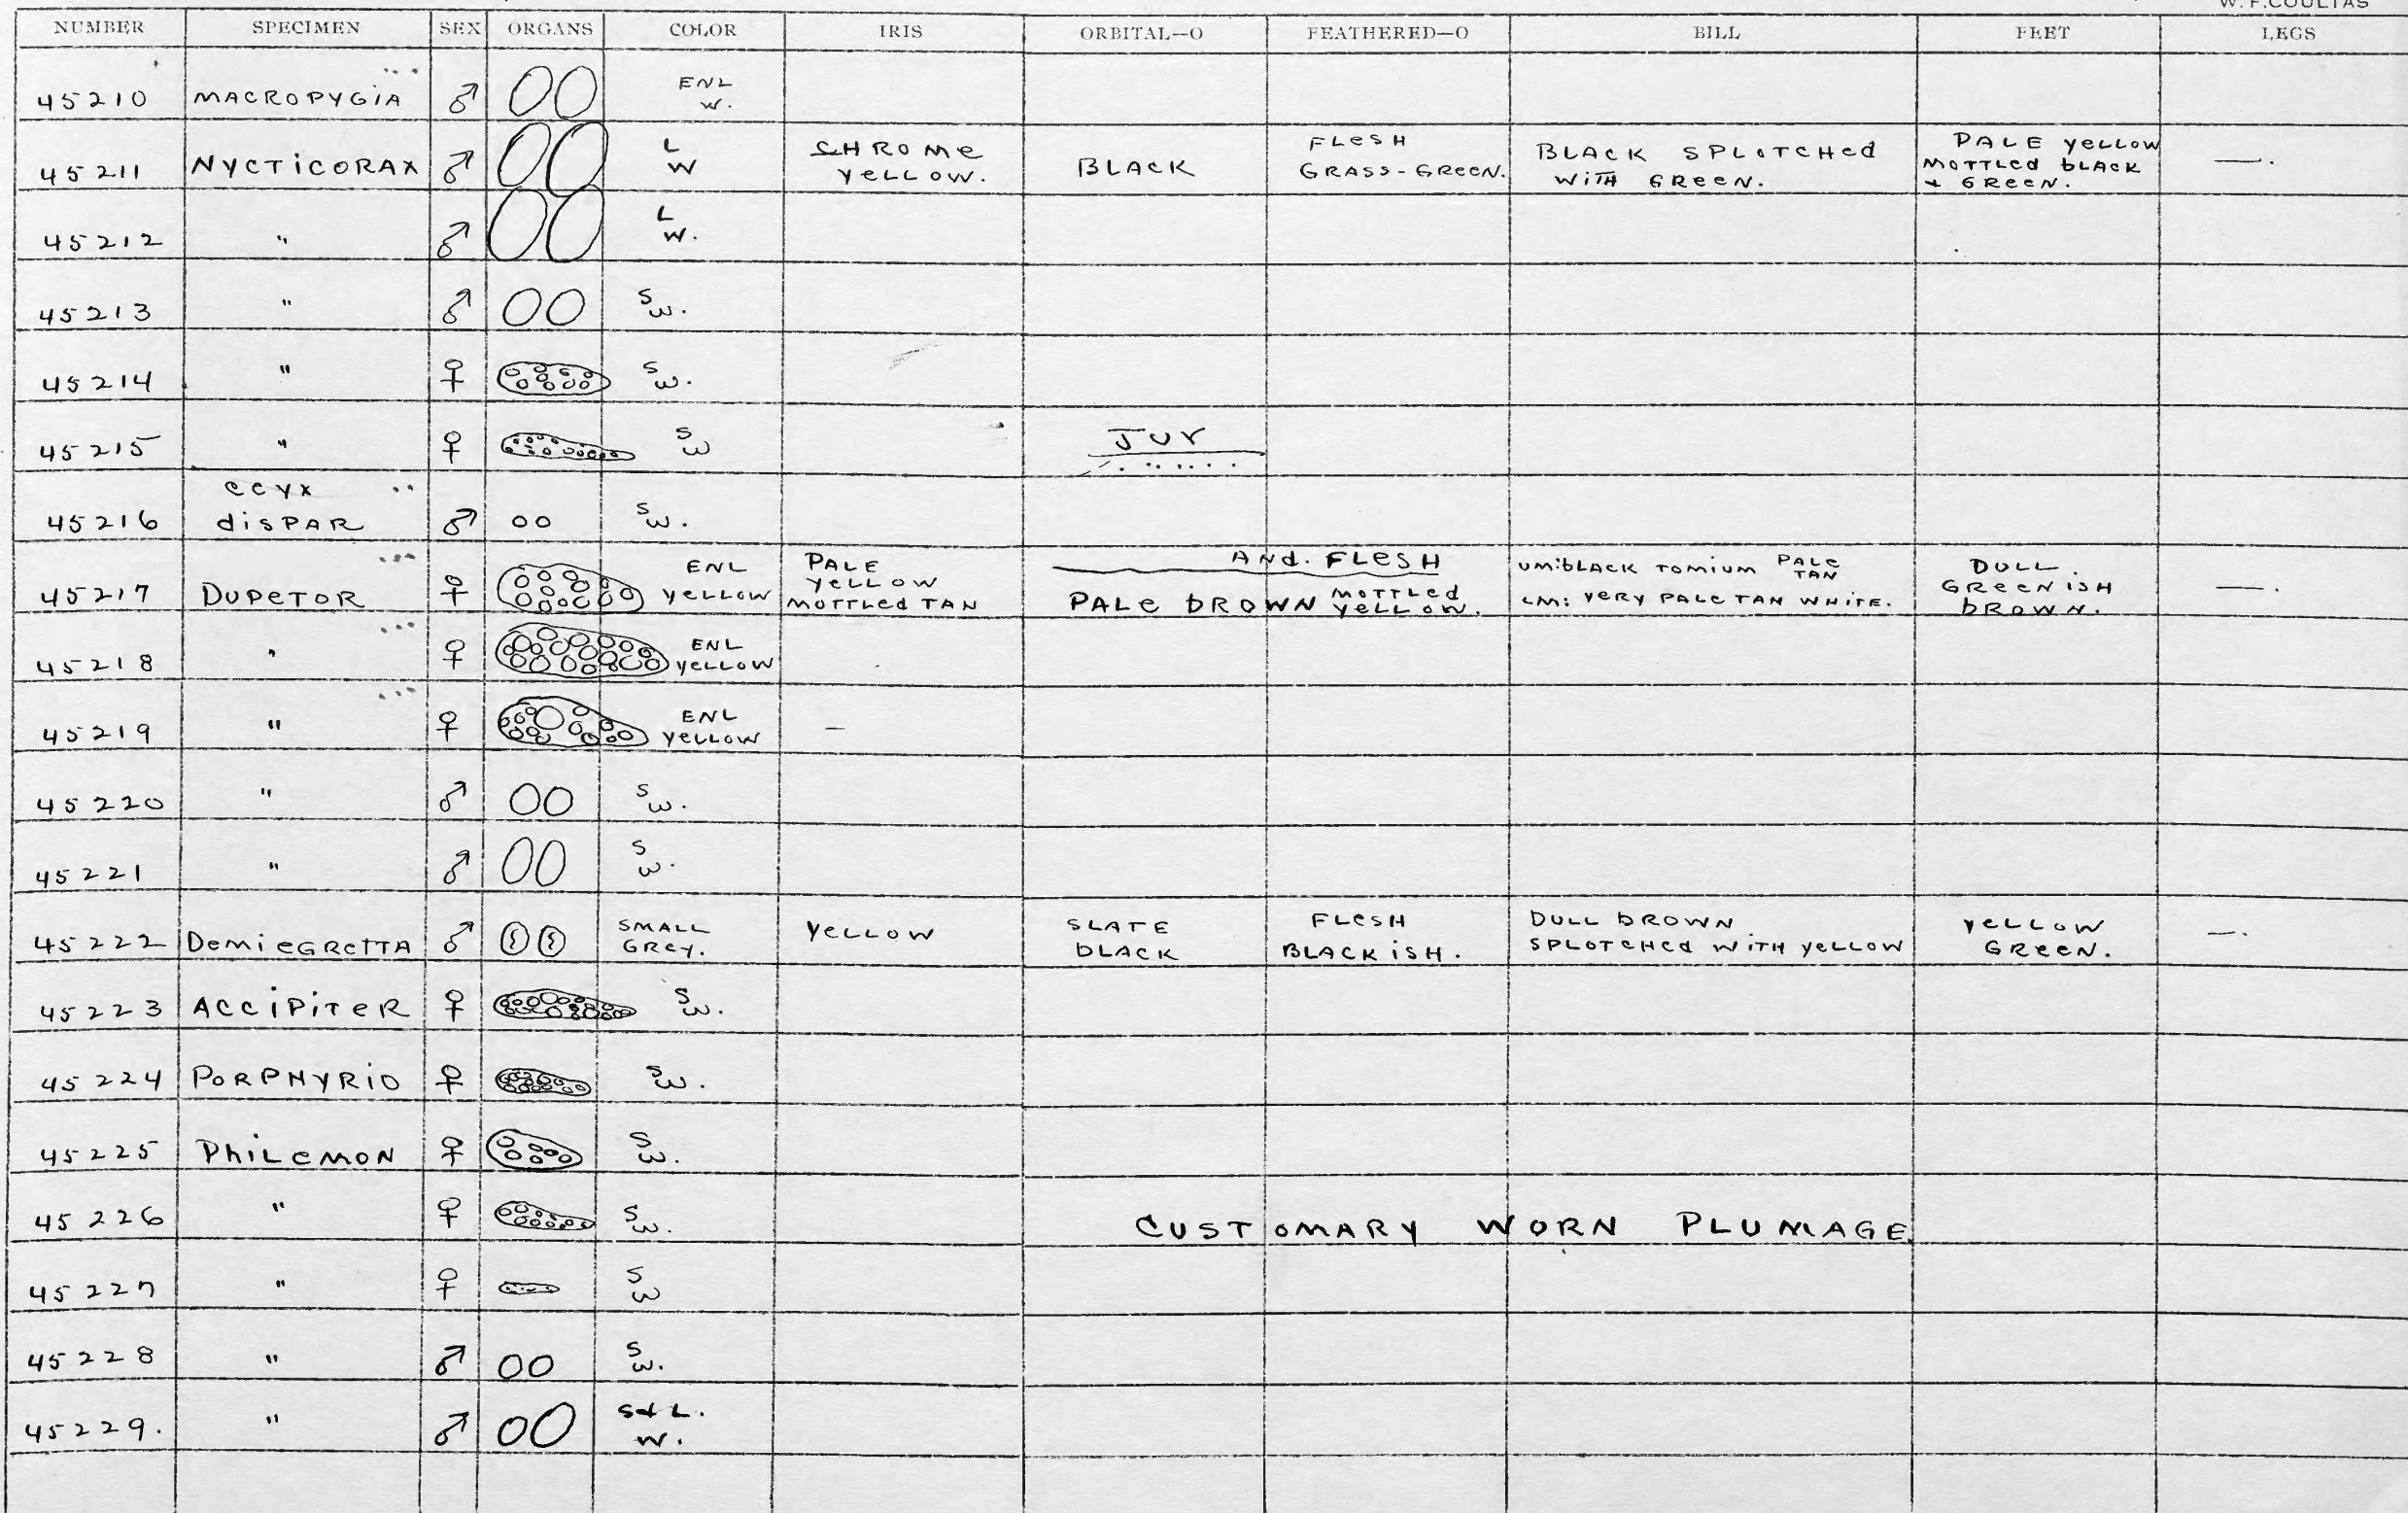 W. F. COULTAS
NUMBER SPECIMEN SEX ORGANS COLOR IRIS ORBITAL—O FEATHERED—O BILL FEET LEGS
45210 MACROPYGIA ♂ ENL W.
45211 NYCTICORAX ♂ L W CHROME YELLOW. BLACK FLESH GRASS-GREEN. BLACK SPLOTCHED WITH GREEN. PALE YELLOW MOTTLED BLACK + GREEN. —.
45212 " ♂ L W.
45213 " ♂ S W.
45214 " ♀ S W.
45215 " ♀ S W JUV
45216 CCYX DISPAR ♂ S W.
45217 DUPETOR ♀ ENL YELLOW PALE YELLOW MOTTLED TAN AND. FLESH PALE BROWN MOTTLED YELLOW. UM: BLACK TOMIUM PALE TAN LM: VERY PALE TAN WHITE. DULL GREENISH BROWN. —.
45218 " ♀ ENL YELLOW
45219 " ♀ ENL YELLOW —
45220 " ♂ S W.
45221 " ♂ S W.
45222 DEMIEGRETTA ♂ SMALL GREY. YELLOW SLATE BLACK FLESH BLACKISH. DULL BROWN SPLOTCHED WITH YELLOW YELLOW GREEN. —.
45223 ACCIPITER ♀ S W.
45224 PORPHYRIO ♀ S W.
45225 PHILEMON ♀ S W.
45226 " ♀ S W. CUSTOMARY WORN PLUMAGE
45227 " ♀ S W
45228 " ♂ S W.
45229. " ♂ S + L. W.